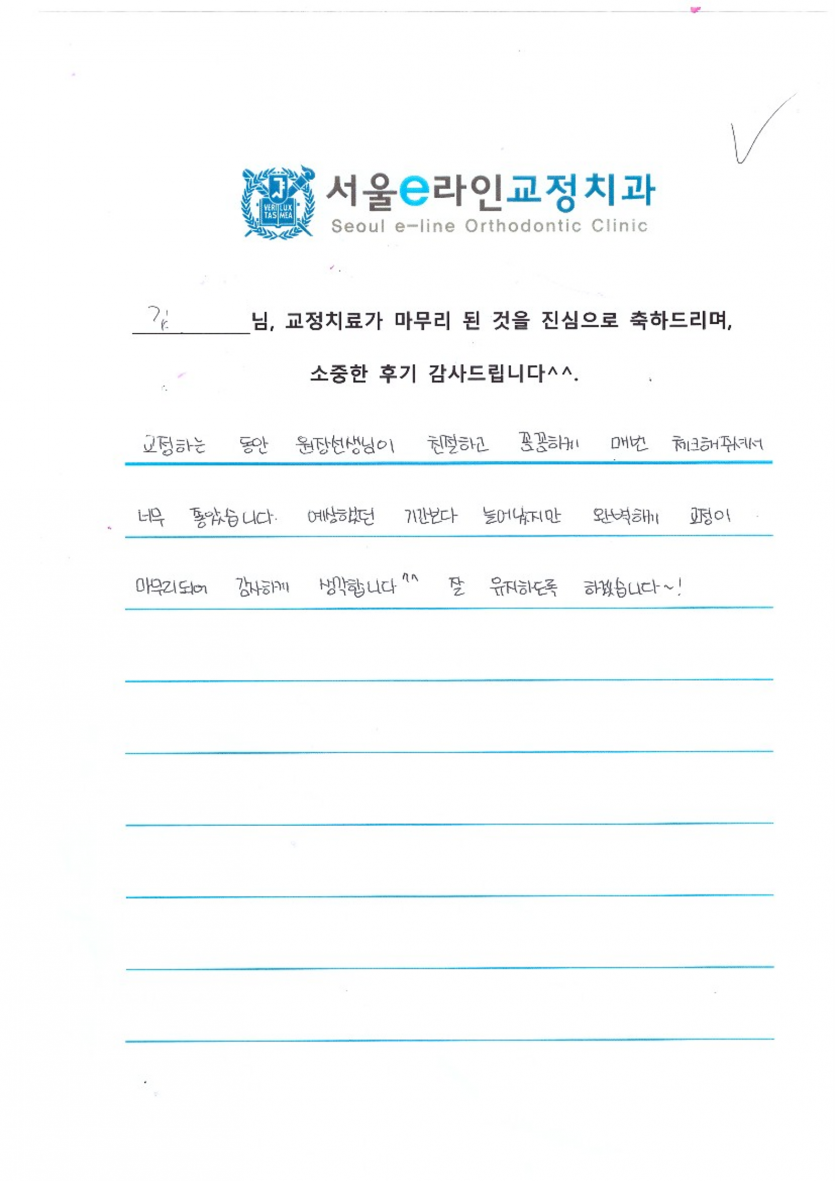 서울e라인교정치과
Seoul e-line Orthodontic Clinic
VERI LUX
TAS MEA
김 님, 교정치료가 마무리 된 것을 진심으로 축하드리며,
소중한 후기 감사드립니다^^.
교정하는 동안 원장선생님이 친절하고 꼼꼼하게 매번 체크해주셔서
너무 좋았습니다. 예상했던 기간보다 늘어났지만 완벽하게 교정이
마무리되어 감사하게 생각합니다^^ 잘 유지하도록 하겠습니다~!